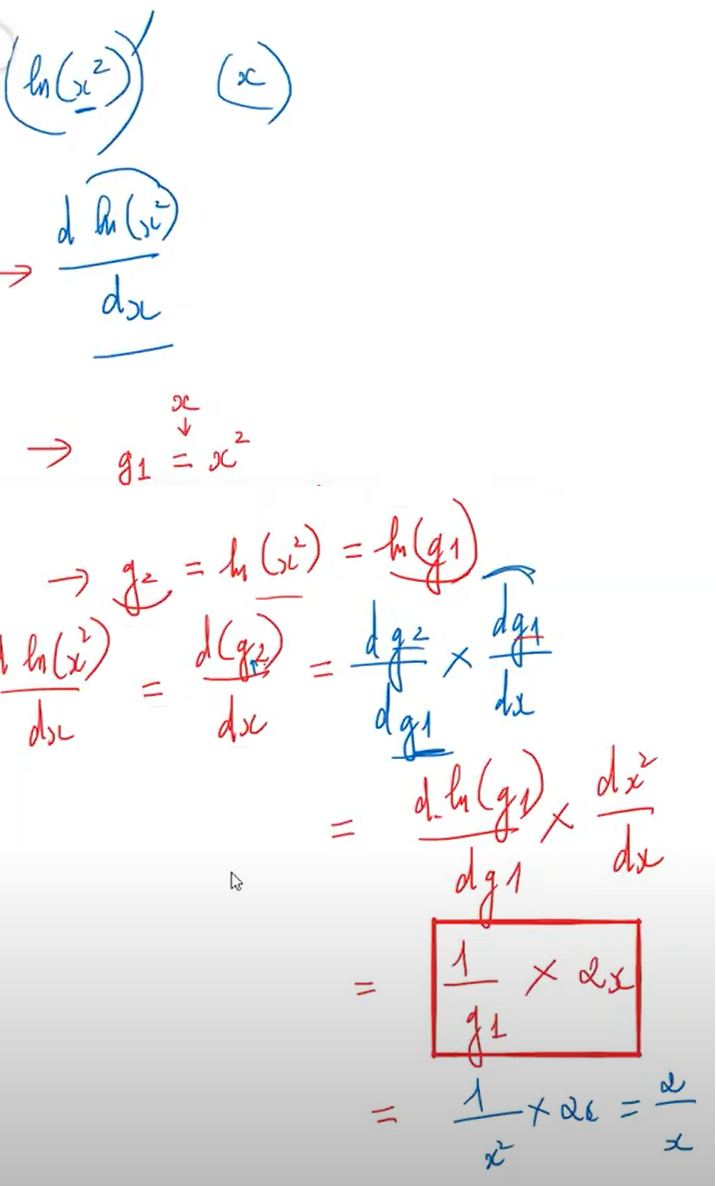 (ln(x²))′ (x)
→ d ln(x²) / dx
x
↓
→ g1 = x²
→ g2 = ln(x²) = ln(g1)
d ln(x²) / dx = d(g2) / dx = dg2 / dg1 × dg1 / dx
= d ln(g1) / dg1 × dx² / dx
= 1 / g1 × 2x
= 1 / x² × 2x = 2 / x